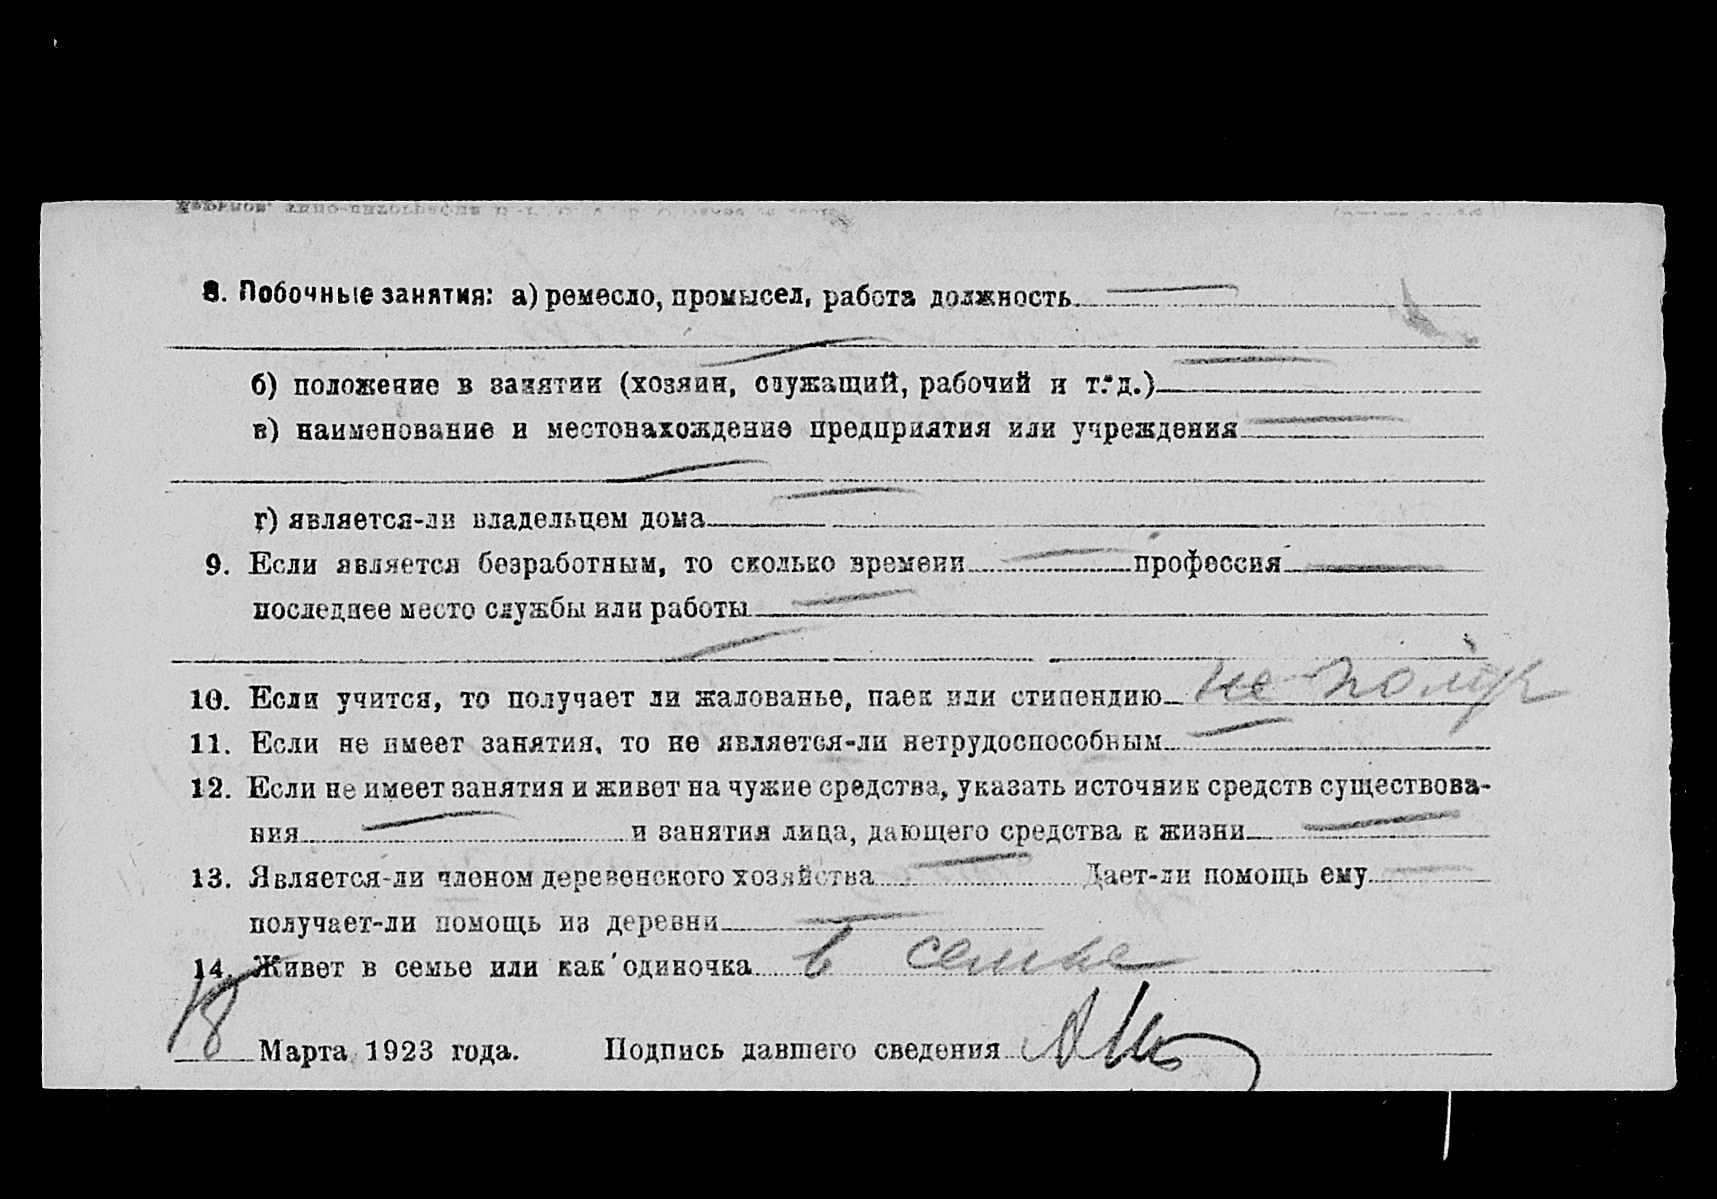 8. Побочные занятия: а) ремесло, промысел, работа должность
б) положение в занятии (хозяин, служащий, рабочий и т. д.)
в) наименование и местонахождение предприятия или учреждения
г) является-ли владельцем дома
9. Если является безработным, то сколько времени профессия
последнее место службы или работы
10. Если учится, то получает ли жалованье, паек или стипендию не получ
11. Если не имеет занятия, то не является-ли нетрудоспособным
12. Если не имеет занятия и живет на чужие средства, указать источник средств существова-
ния и занятия лица, дающего средства к жизни
13. Является-ли членом деревенского хозяйства Дает-ли помощь ему
получает-ли помощь из деревни
14. Живет в семье или как одиночка в семье
18 Марта 1923 года. Подпись давшего сведения